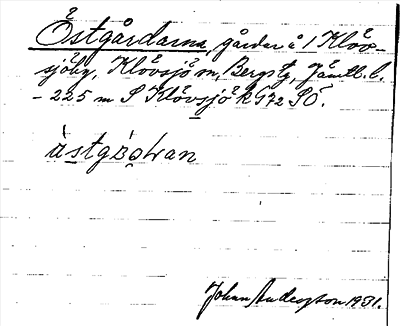 Östgårdarna, gårdar å 1 Klöv-
sjöby, Klövsjö sn, Bergs tg, Jämtl. l.
- 225 m S Klövsjö k 572 SÖ.
Johan Anderzton 1931.